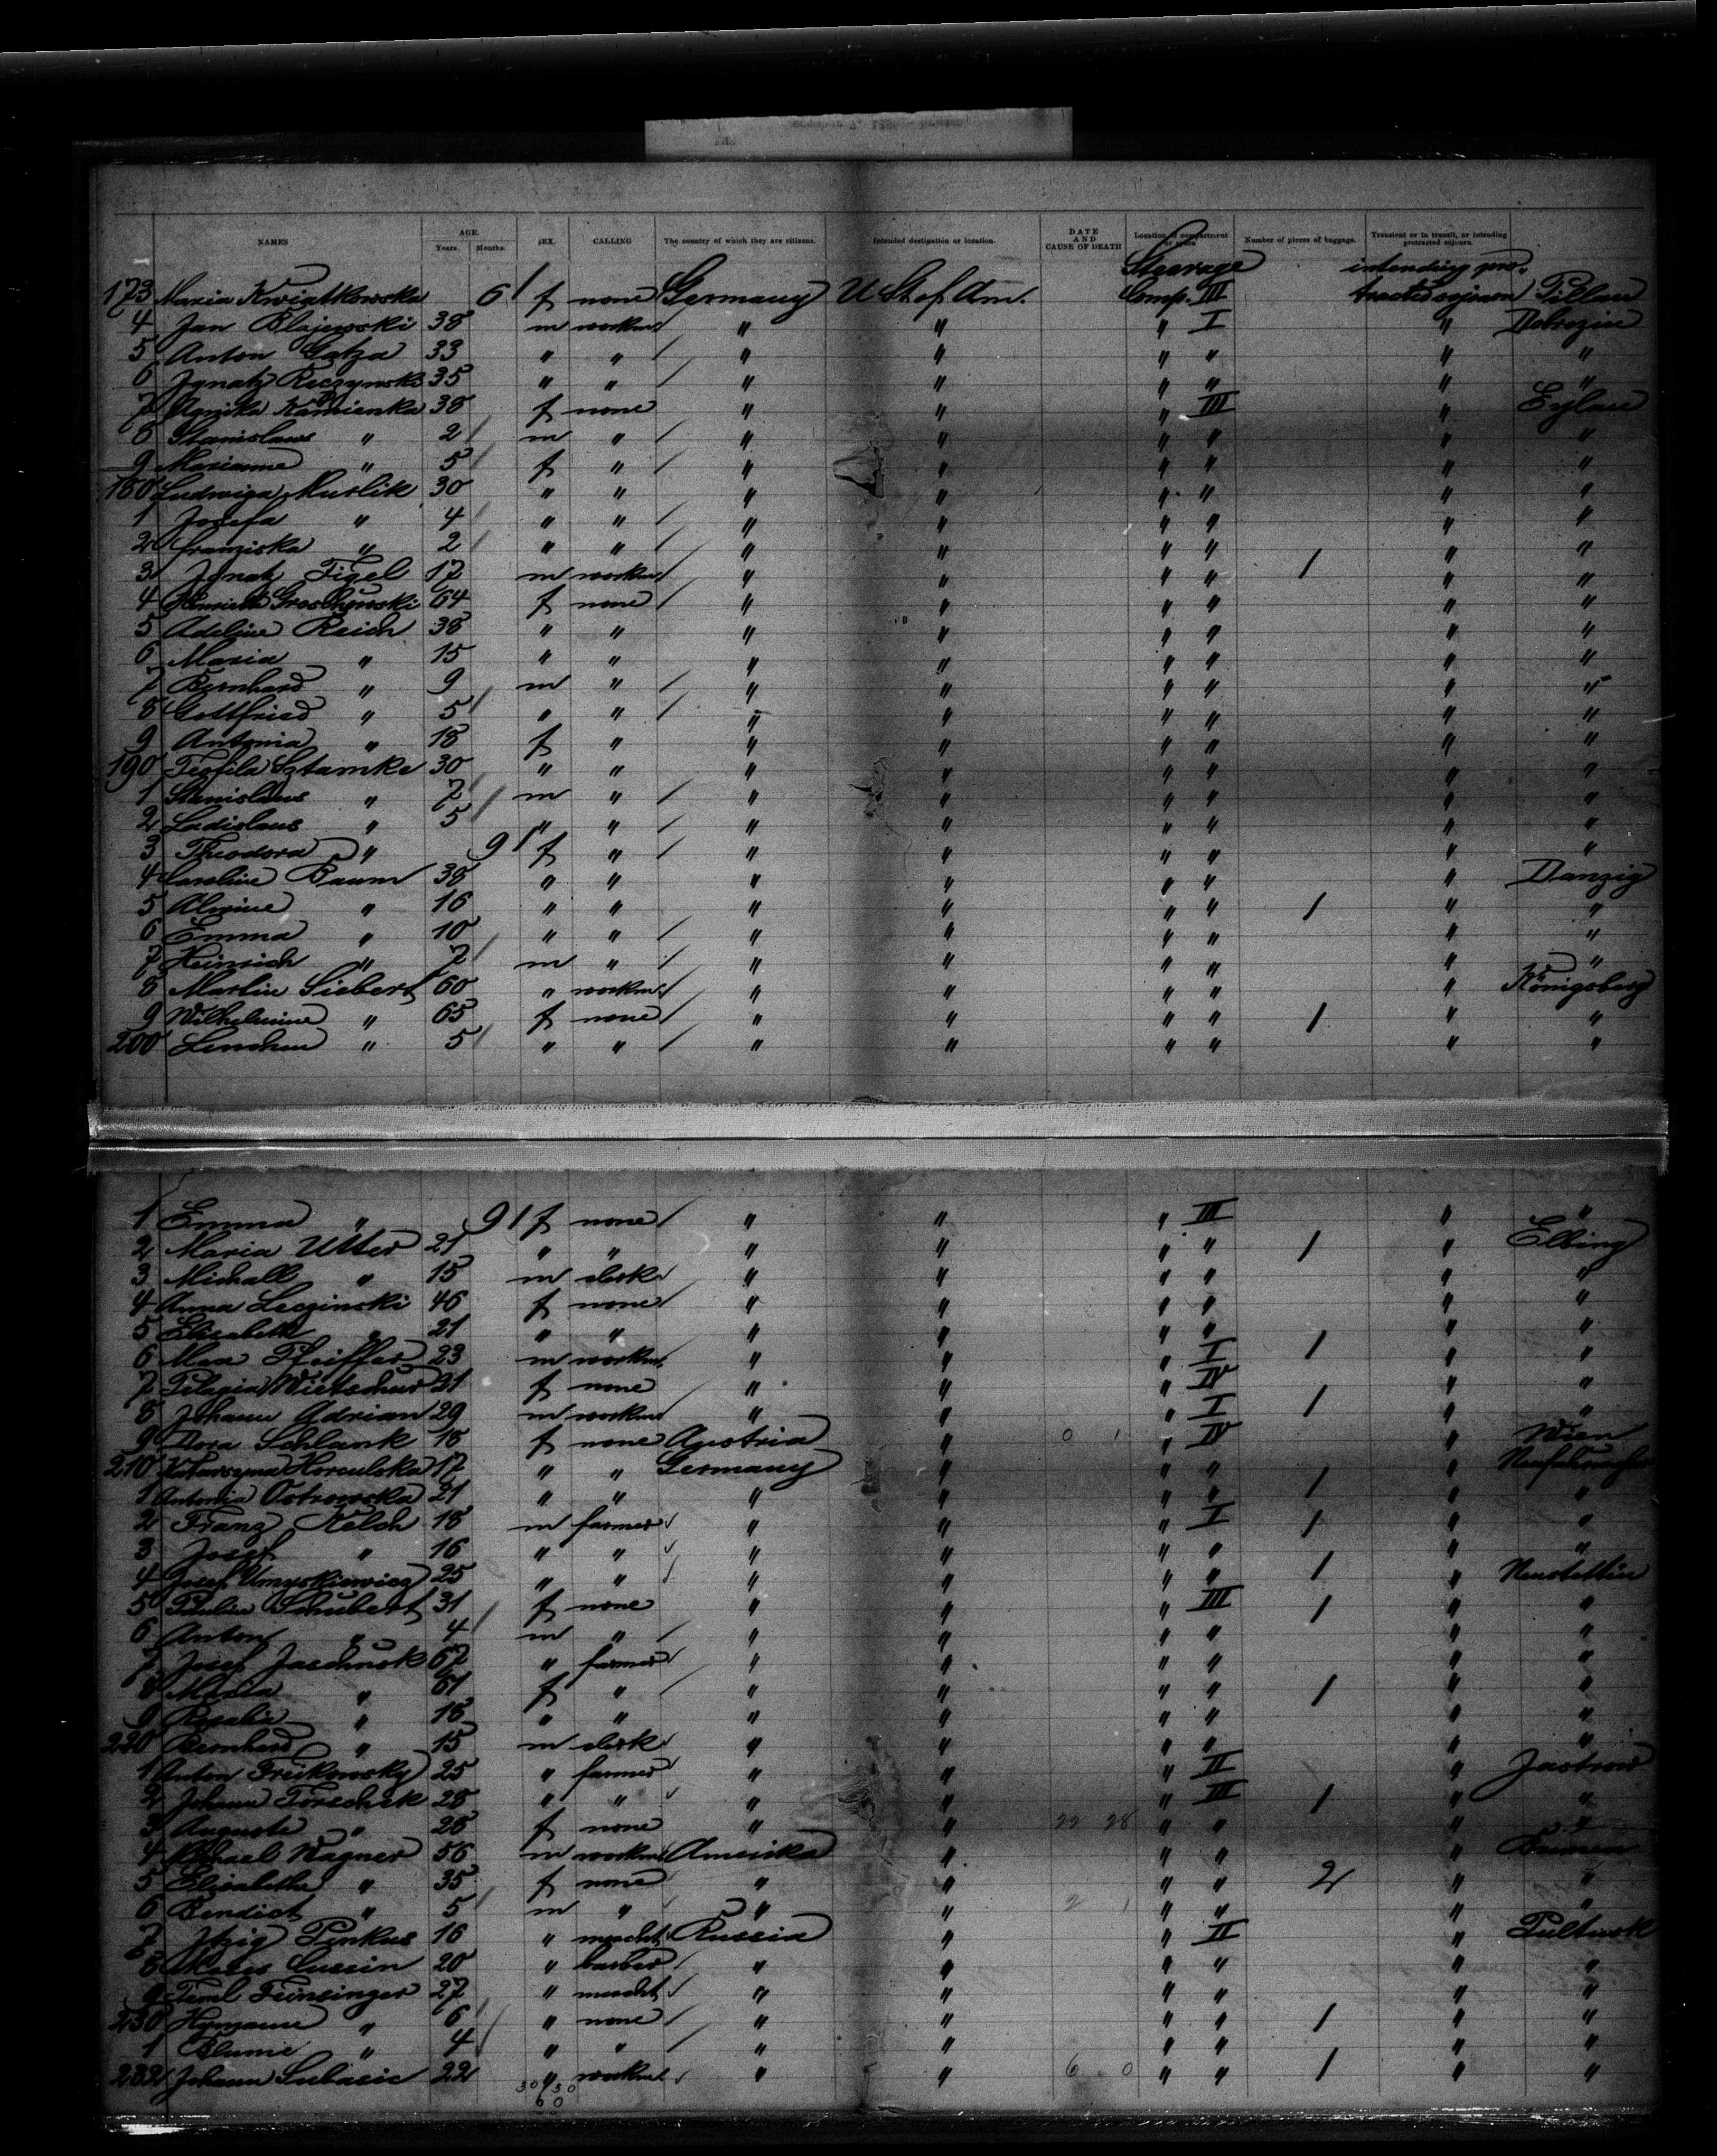 NAMES AGE. Years. Months. SEX. CALLING The country of which they are citizens. Intended destination or location. DATE AND CAUSE OF DEATH Location of compartment or space Number of pieces of baggage. Transient or in transit, or intending protracted sojourn.
Steerage intending pro-
173 Maria Kwiatkowska 6 f none Germany U St of Am. Comp. III tracted sojourn Pillau
4 Jan Blajewski 38 m workm " " " I "
5 Anton Gatza 33 " " / " " " " " "
6 Ignatz 35 " " / " " " " " "
7 Kamienka 38 f none " " " III " Eylau
8 Stanislaus " 2 m " / " " " " " "
9 Marianne " 5 f " / " " " " " "
180 Ludwiga Murlik 30 " " " " " " " "
1 Josefa " 4 " " / " " " " " "
2 Franziska " 2 " " / " " " " " "
3 Ignatz Figel 17 m workm / " " " " / " "
4 64 f none / " " " " " "
5 Adeline Reich 38 " " " " " " " "
6 Maria " 15 " " " " " " " "
7 Bernhard " 9 m " / " " " " " "
8 Gottfried " 5 " " / " " " " " "
9 Antonia " 18 f " " " " " " "
190 Teofila Sztamke 30 " " " " " " " "
1 Stanislaus " 7 m " / " " " " " "
2 Ladislaus " 5 " " / " " " " " "
3 Theodora " 9 f " / " " " " " "
4 Caroline Baum 38 " " " " " " " Danzig
5 Alwine " 16 " " " " " " / " "
6 Emma " 10 " " / " " " " " "
7 Heinrich " 7 m " / " " " " " "
8 Martin Siebert 60 " workm / " " " " " Königsberg
9 Wilhelmine " 65 f none / " " " " / " "
200 Lenchen " 5 " " / " " " " " "
1 Emma " 9 f none / " " " III " "
2 Maria Utter 21 " " " " " " / " Elbing
3 Michall " 15 m clerk " " " " " "
4 Anna Leszinski 46 f none / " " " " " "
5 Elisabeth " 21 " " " " " " " "
6 Max Pfeiffer 23 m workm " " " I / " "
7 Pelagia 21 f none " " " IV " "
8 Johann Adrian 29 m workm " " " I / " "
9 Dora Schlank 18 f none Austria " " IV " Wien
210 Horculska 17 " " Germany " " " "
1 Antonia Ostrowska 21 " " " " " " / " "
2 Franz Kelch 18 m farmer " " " I / " "
3 Josef " 16 " " " " " " " "
4 Josef 25 " " " " " " / " Neustettin
5 Pauline Schubert 31 f none " " " III / " "
6 Anton " 4 m " / " " " " " "
7 Josef 67 " farmer " " " " " "
8 Maria " 61 f " / " " " " / " "
9 Rosalie " 18 " " " " " " " "
220 Bernhard " 15 m clerk " " " " " "
1 Anton Freikowsky 25 " farmer " " " II " Jastrow
2 Johann 25 " " " " " III / " "
3 Auguste " 26 f none " " " " " "
4 Michael Wagner 56 m workm Amerika " " " " Bremen
5 Elisabetha " 35 f none " " " " 2 " "
6 Bendict " 5 m " " " " " " "
7 Itzig Pinkus 16 " mercht Russia " " II " Pultusk
8 Moses 20 " barber " " " " " "
9 Feinsinger 27 " mercht " " " " " "
230 " 6 " none " " " " / " "
1 Blume " 4 " " / " " " " " "
232 Johann 22 " workm " " " " / " "